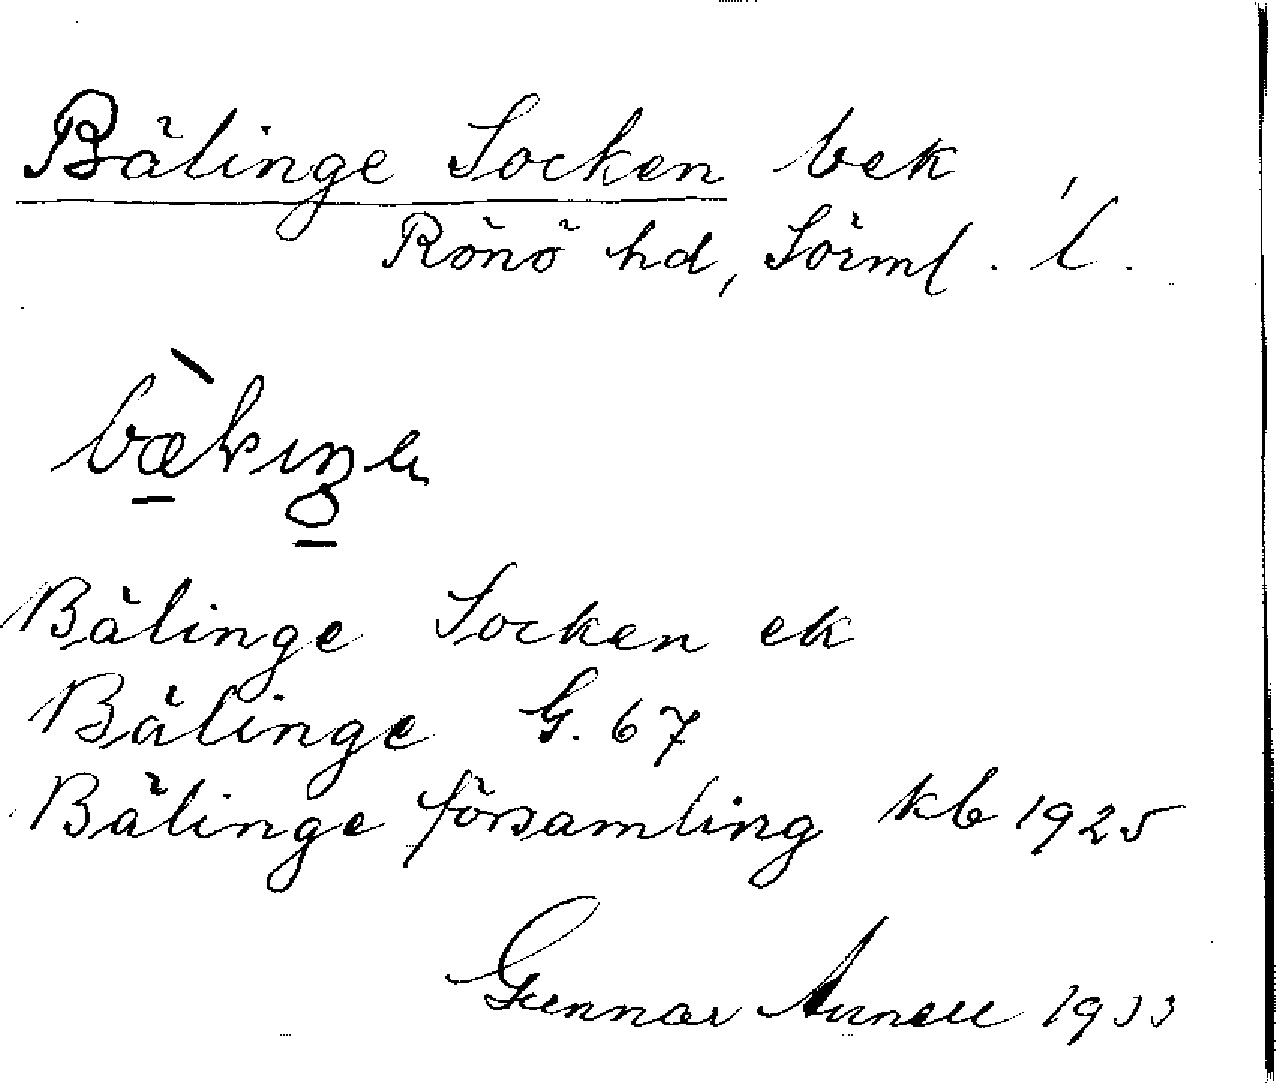 Bälinge Socken bek
Rönö hd, Sörml. l.
Bälinge Socken ek
Bälinge G. 67
Bälinge församling kb 1925
Gunnar 1933